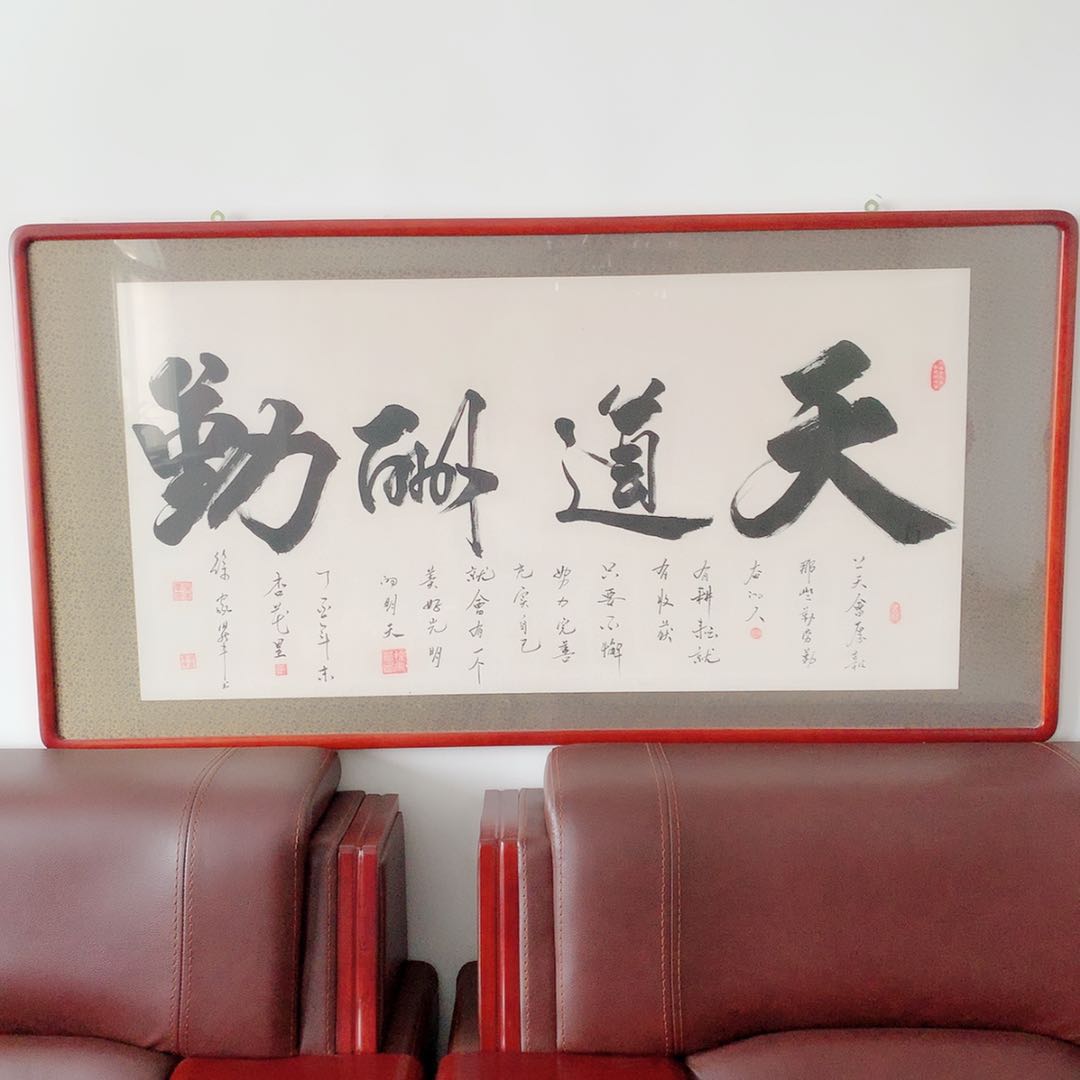 天道酬勤
上天會厚報
那些勤劳勤
奋的人
有耕耘就
有收获
只要不懈
努力完善
充实自己
就會有一个
美好光明
的明天
丁酉年末
徐家